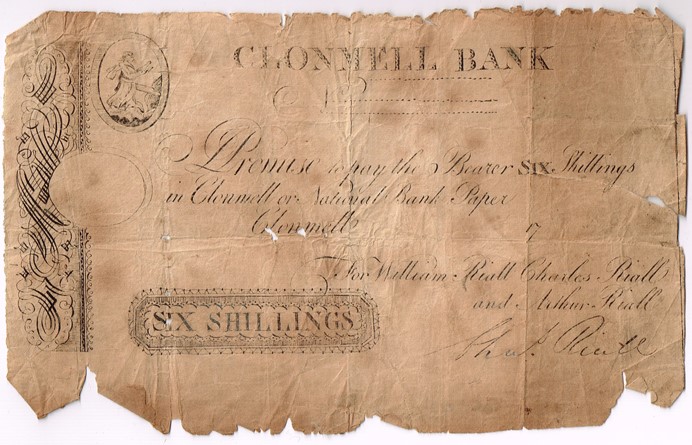 CLONMELL BANK
No
I Promise to pay the Bearer SIX Shillings
in Clonmell or National Bank Paper
Clonmell 17
For William Riall Charles Riall
and Arthur Riall
SIX SHILLINGS
Chas. Riall